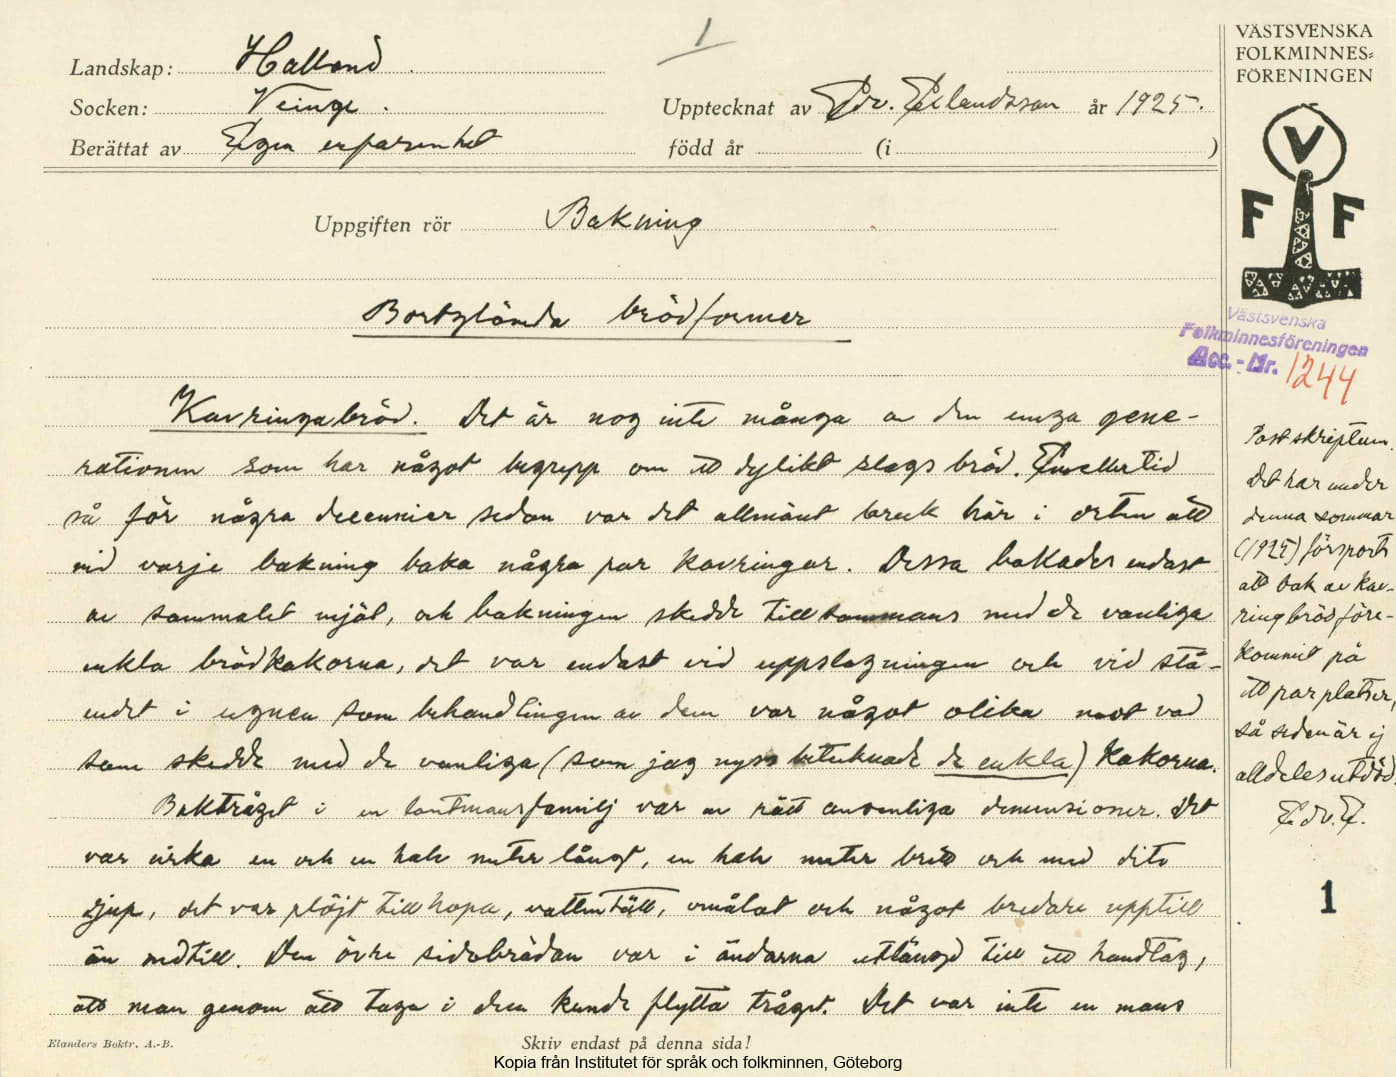 1
Landskap: Halland
Socken: Veinge.
Upptecknat av Edv. Erlandsson år 1925.
Berättat av Egen erfarenhet
född år (i )
Uppgiften rör Bakning
Bortglömda brödformer
Kavringabröd. Det är nog inte många av den unga gene-
rationen som har något begrepp om ett dylikt slags bröd. Emellertid
så för några decennier sedan var det allmänt bruk här i orten att
vid varje bakning baka några par kavringar. Dessa bakades endast
av sammalet mjöl, och bakningen skedde tillsammans med de vanliga
enkla brödkakorna, det var endast vid uppslagningen och vid stå-
endet i ugnen som behandlingen av dem var något olika mot vad
som skedde med de vanliga (som jag nyss betecknade de enkla) kakorna.
Baktråget i en lantmansfamilj var av rätt ansenliga dimensioner. Det
var cirka en och en halv meter långt, en halv meter brett och med dito
djup, det var plöjt tillhopa, vattentätt, omålat och något bredare upptill
än nedtill. Den övre sidobrädan var i ändarna utlängd till ett handtag,
att man genom att taga i dem kunde flytta tråget. Det var inte en mans
Elanders Boktr. A.-B.
Skriv endast på denna sida!
VÄSTSVENSKA
FOLKMINNES-
FÖRENINGEN
V
F F
Västsvenska
Folkminnesföreningen
Acc.-Nr. 1244
Postskriptum.
Det har under
denna sommar
(1925) försports
att bak av kav-
ringbröd före-
kommit på
ett par platser,
så seden är ej
alldeles utdöd.
Edv. E.
1
Kopia från Institutet för språk och folkminnen, Göteborg